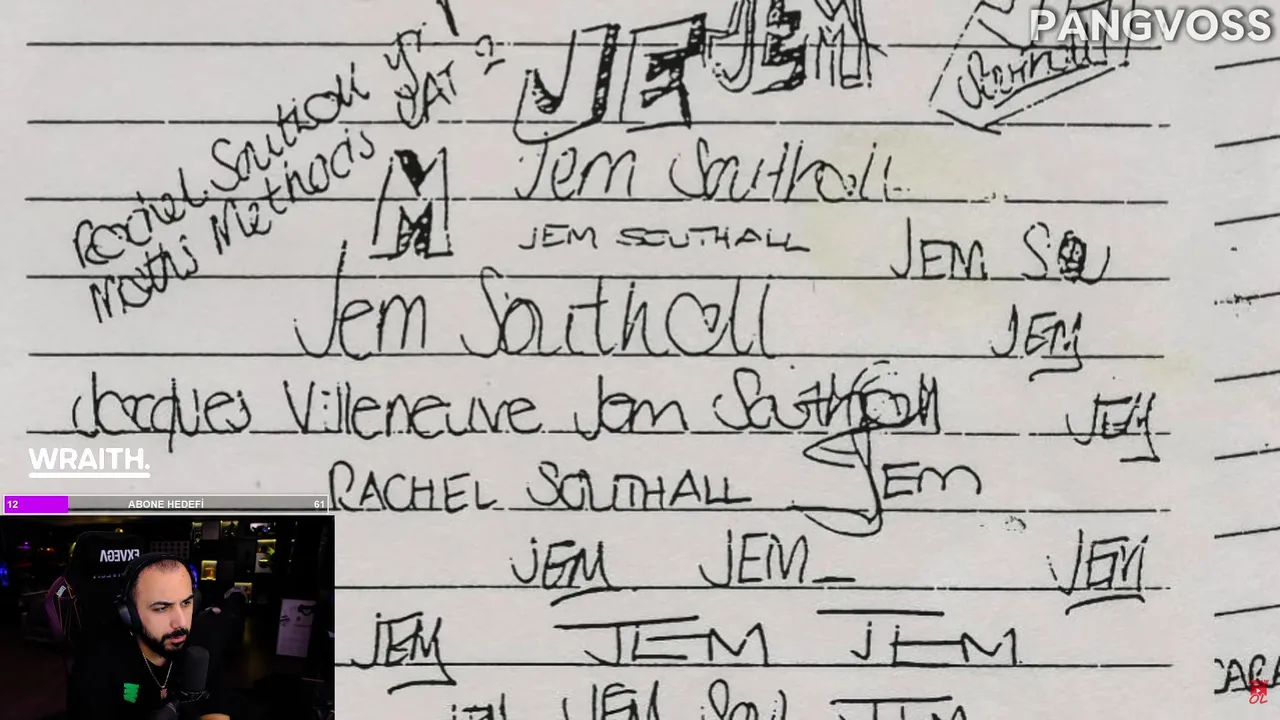 PANGVOSS
JE JEM
Rachel Southall
Maths Methods
M
Jem Southall
JEM SOUTHALL
JEM SOU
Jem Southall
JEM
Jacques Villeneuve Jem Southall
JEM
WRAITH.
RACHEL SOUTHALL JEM
12 ABONE HEDEFİ 61
JEM JEM JEM
JEM JEM JEM
JEM JEM SOU JEM